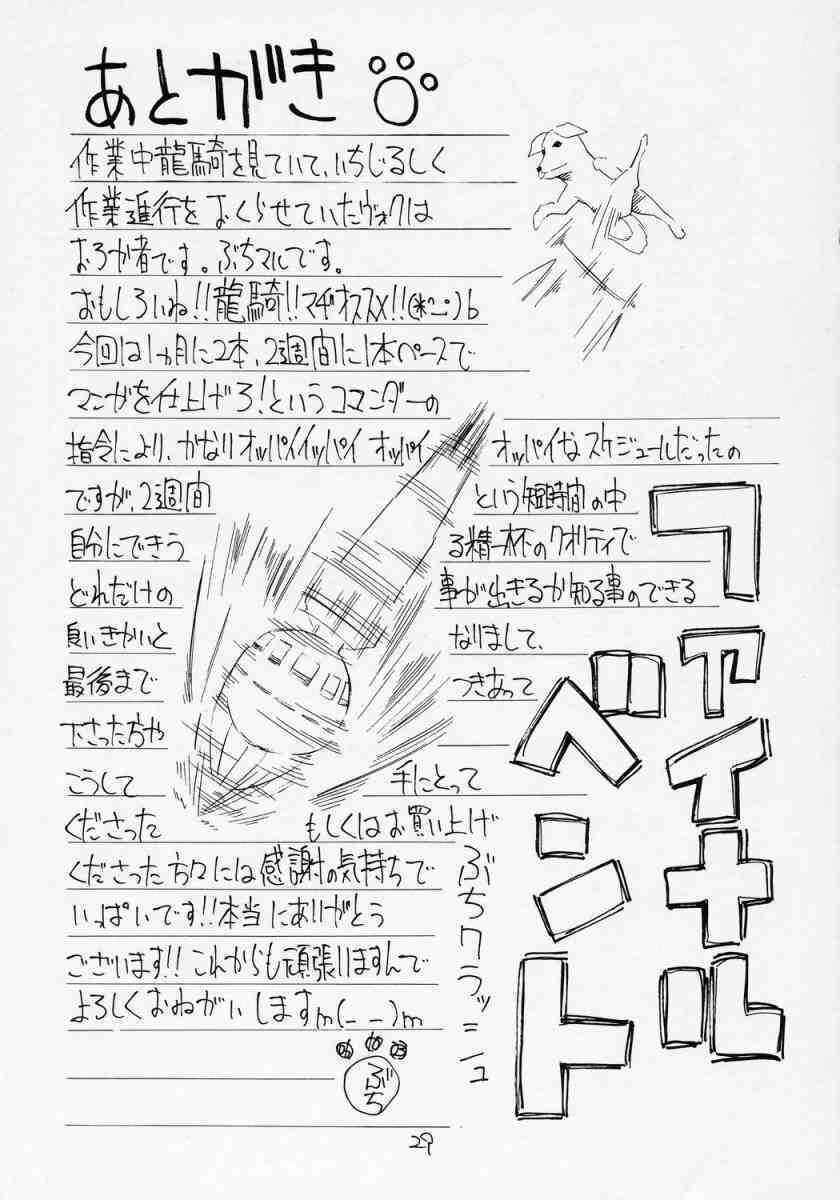 あとがき
作業中龍騎を見ていて、いちじるしく
作業進行をおくらせていたヴォクは
おろか者です。ぶちマルです。
おもしろいね!!龍騎!!マヂオススメ!!(*^-^)b
今回は1ヵ月に2本、2週間に1本ペースで
マンガを仕上げろ!というコマンダーの
指令により、かなりオッパイイッパイ オッパイ オッパイなスケジュールだったの
ですが、2週間という短時間の中
自分にできうる精一杯のクオリティで
どれだけの事が出きるか知る事のできる
良いきかいとなりまして、
最後までつきあって
下さった方や
こうして手にとって
くださったもしくはお買い上げ
くださった方々には感謝の気持ちで
いっぱいです!!本当にありがとう
ございます!!これからも頑張りますんで
よろしくおねがいしますm(_ _)m
ぶち
ファイナル
ベント
ぶちクラッシュ
29